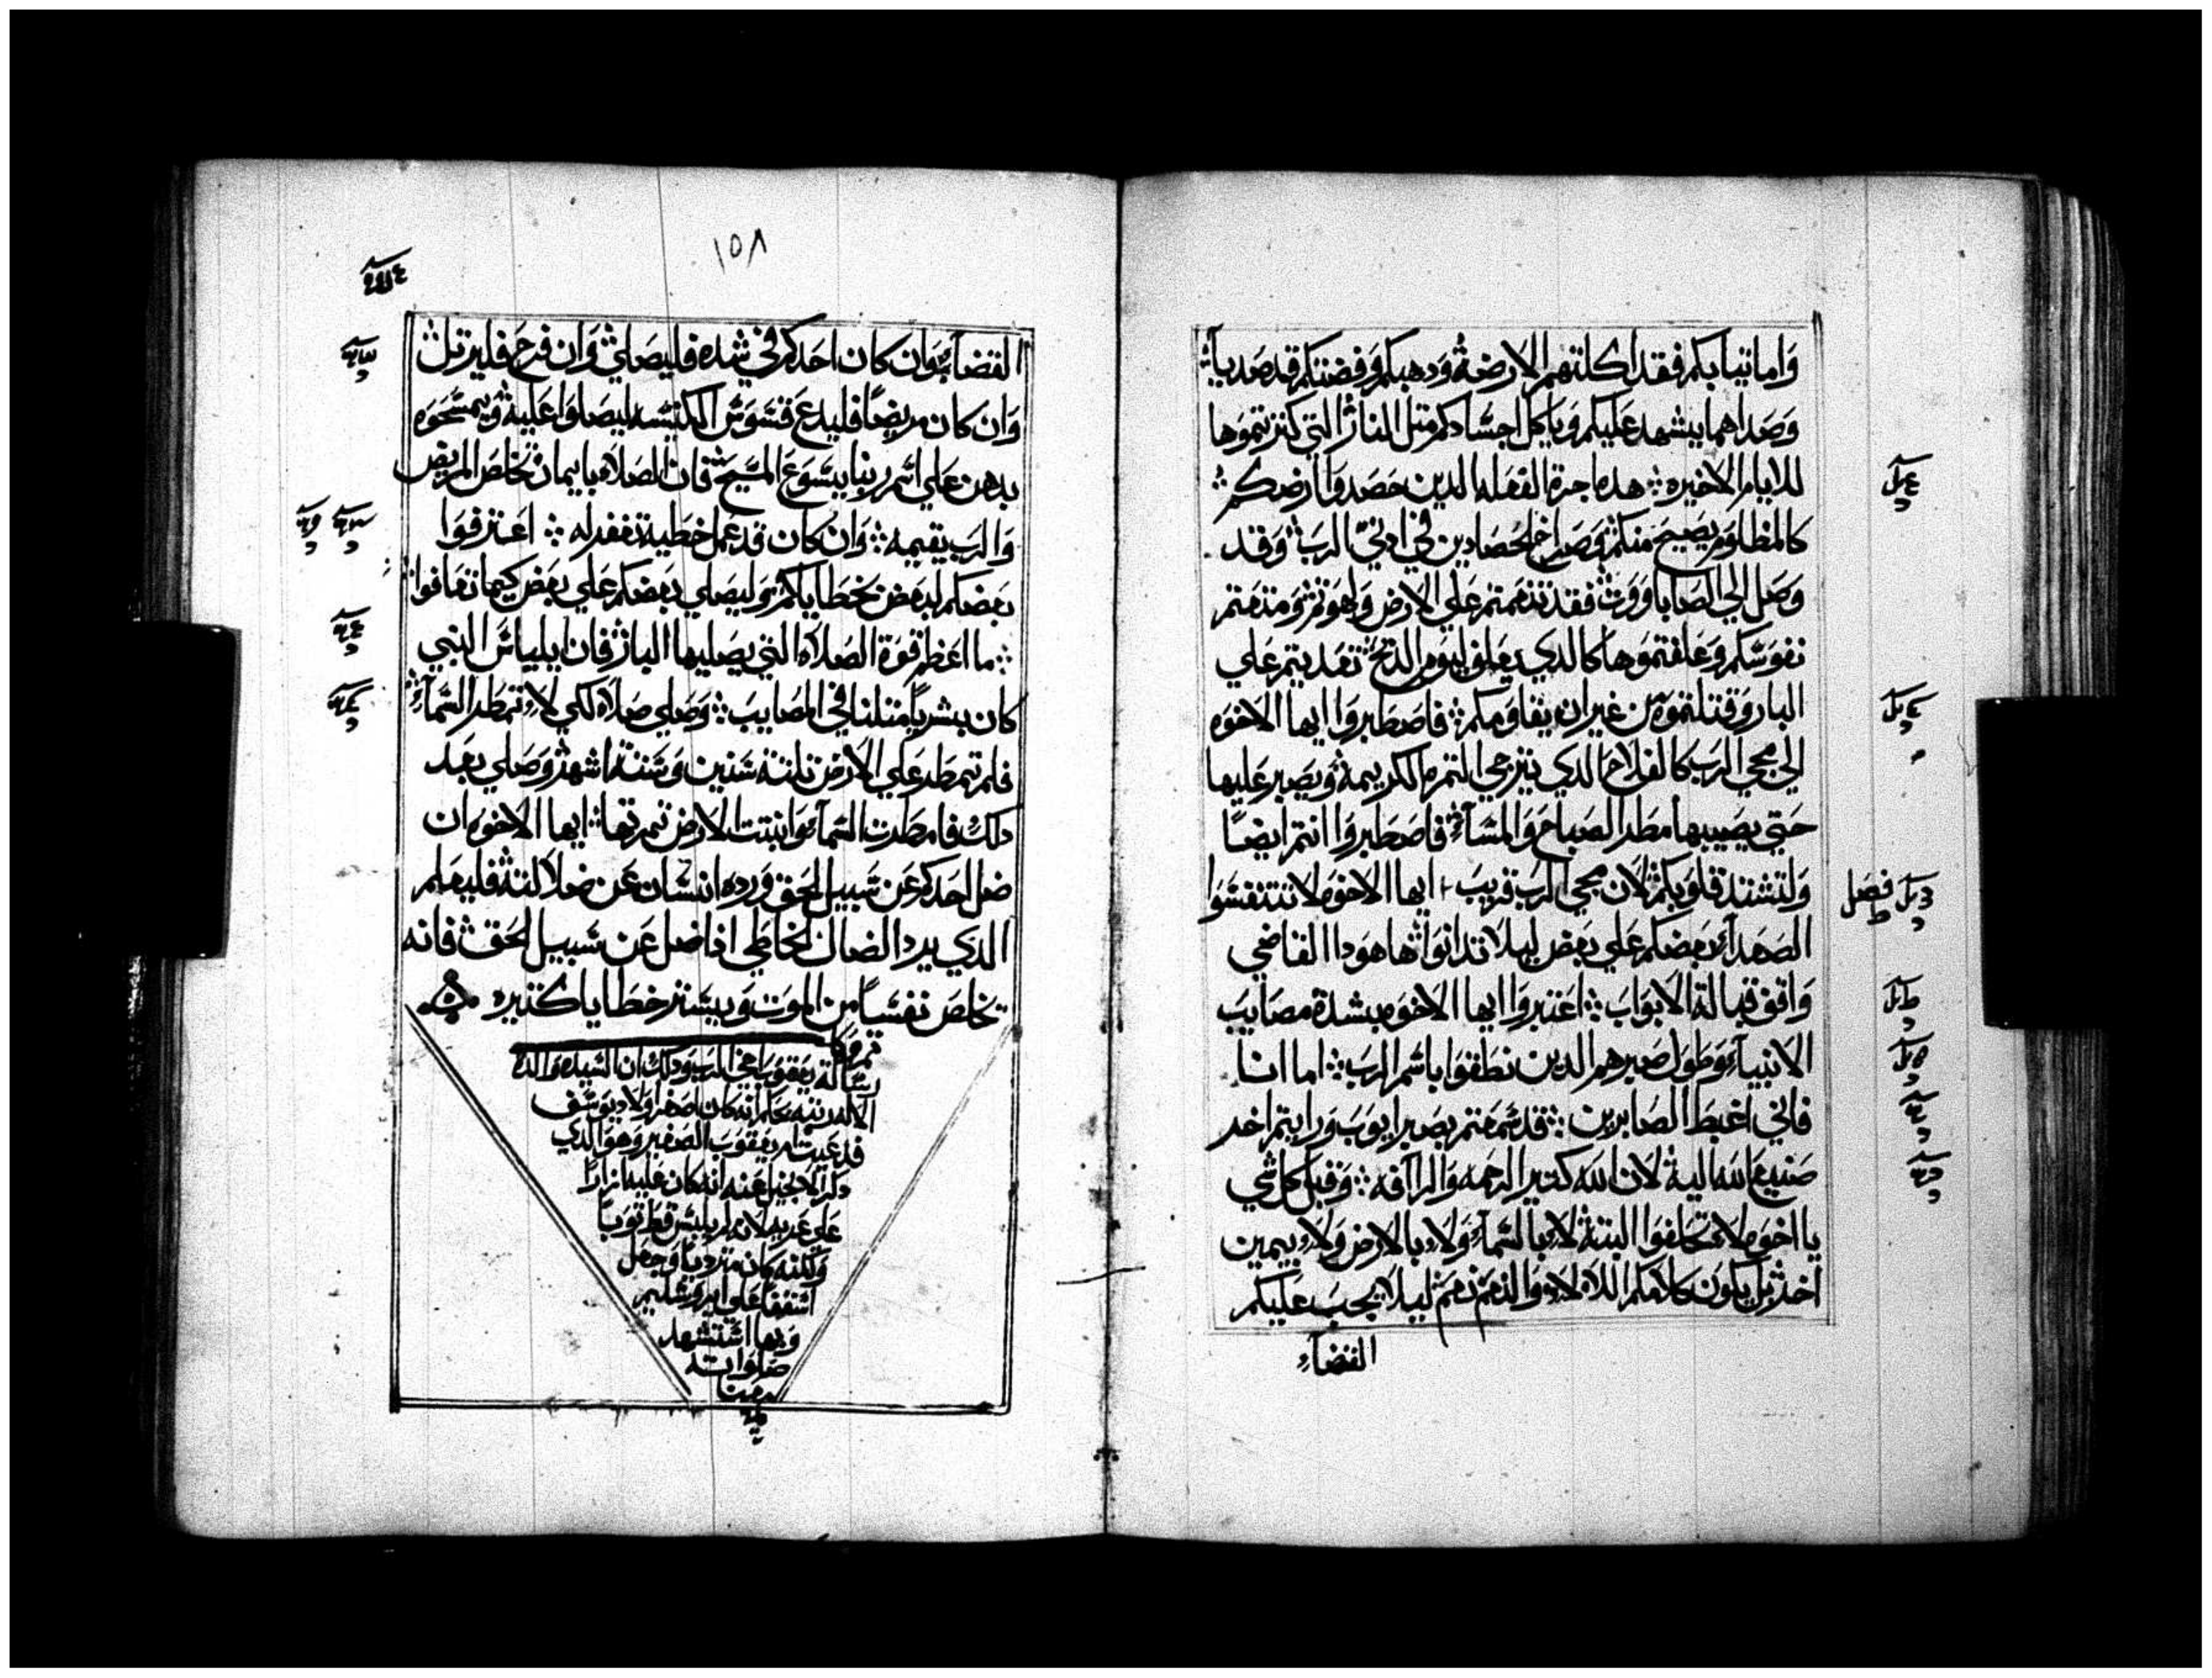 واما تيابكم فقد اكلتهم الارضه ودهبكم وفضتكم قد صديا
وصداهما يشهد عليكم وياكل اجسادكم متل النار التي كنزتموها
للايام الاخيره هده اجرة الفعله الدين حصدوا ارضكم
كالمظلوم يصيح منكم وصراخ الحصادين في ادني الرب وقد
وصل الي الصاباووت فقد تنعمتم علي الارض ولهوتم ومتعتم
نفوسكم وعلفتموها كالدي يعلف ليوم الدبح تعديتم علي
البار وقتلتموه من غير ان يقاومكم فاصطبروا ايها الاخوه
الي مجي الرب كالفلاح الدي يترجي التمره الكريمه ويصبر عليها
حتي يصيبها مطر الصباح والمسآء فاصطبروا انتم ايضًا
ولتشتد قلوبكم لان مجي الرب قريب ايها الاخوه لا تتنفسوا
الصعدآء بعضكم علي بعض ليلا تدانوا ها هودا القاضي
واقف قبالة الابواب اعتبروا ايها الاخوه بشدة مصايب
الانبيآء وطول صبرهم الدين نطقوا باسم الرب اما انا
فاني اغبط الصابرين قد سمعتم بصبر ايوب ورايتم اخر
صنيع الله اليه لان الله كتير الرحمه والرآفه وقبل كل شي
يا اخوه لا تحلفوا البتة لا بالسمآء ولا بالارض ولا بيمين
اخر بل يكون كلامكم اللا لا والنعم نعم ليلا يجب عليكم
القضآء
فصل
١٥٨
القضآء وان كان احدكم في شده فليصلي وان فرح فليرتل
وان كان مريضًا فليدع قسوس الكنيسه ليصلوا عليه ويمسحوه
بدهن علي اسم ربنا يسوع المسيح فان الصلاه بايمان تخلص المريض
والرب يقيمه وان كان قد عمل خطية تغفر له اعترفوا
بعضكم لبعض بخطاياكم وليصلي بعضكم علي بعض كيما تعافوا
ما اعظم قوة الصلاه التي يصليها البار فان ايلياس النبي
كان بشريًا متلنا في المصايب وصلي صلاه لكي لا تمطر السمآء
فلم تمطر علي الارض تلتة سنين وستة اشهر وصلي بعد
دلك فامطرت السمآء وانبتت الارض تمرتها ايها الاخوه ان
ضل احدكم عن سبيل الحق ورده انسان عن ضلالته فليعلم
الدي يرد الضال الخاطي ادا ضل عن سبيل الحق فانه
تخلص نفسًا من الموت ويستر خطايا كتيره
رسالة يعقوب اخي الرب ودلك ان السيده والدة
الاله كان اصغر اولاد يوسف
يعقوب الصغير وهو الدي
عنه انه كان عليه ازارًا
علي عريه لانه لم يلبس قط توبًا
ولكنه كان وجعل
اسقفًا علي ايروشليم
وبها استشهد
صلواته
معنا